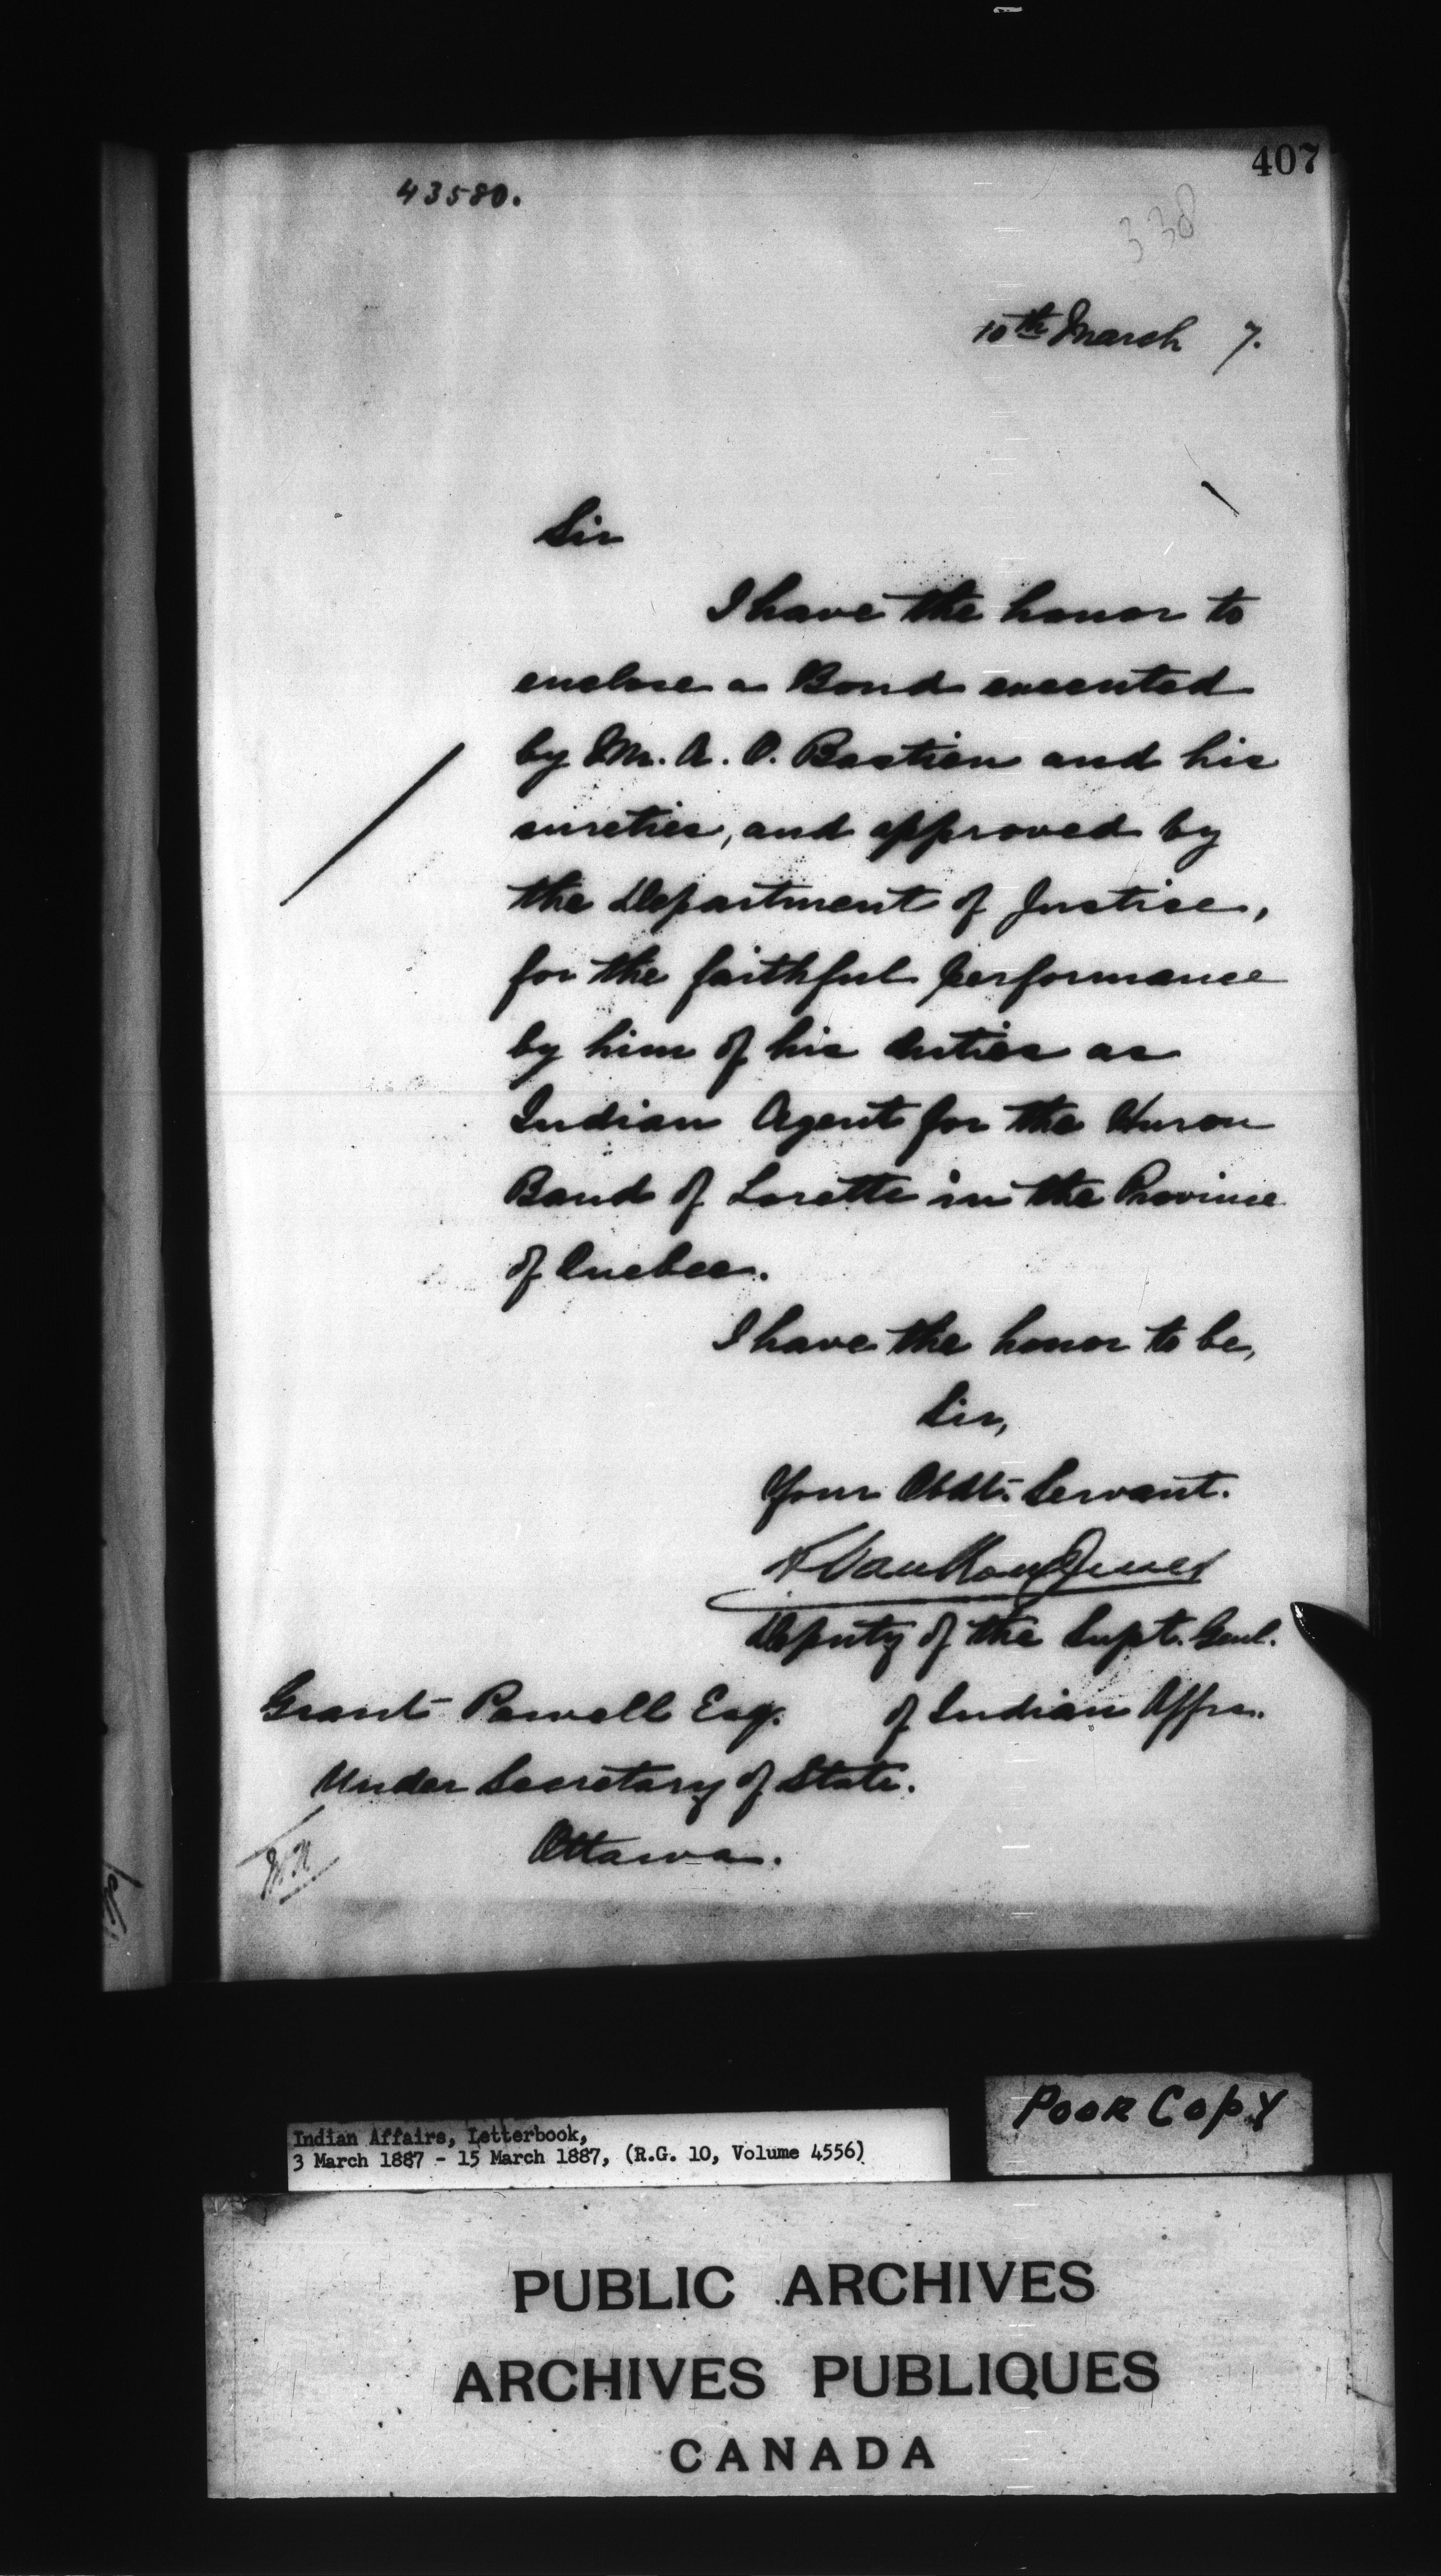 407
43580.
338
10th March 7.
Sir
I have the honor to
enclose a Bond executed
by Mr. A. O. Bastien and his
sureties, and approved by
the Department of Justice,
for the faithful performance
by him of his duties as
Indian Agent for the Huron
Band of Lorette in the Province
of Quebec.
I have the honor to be,
Sir,
Your Obdt. Servant.
L VanKoughnet
Deputy of the Supt. Genl.
of Indian Affrs.
Grant Powell Esq.
Under Secretary of State.
Ottawa.
Poor Copy
Indian Affairs, Letterbook,
3 March 1887 - 15 March 1887, (R.G. 10, Volume 4556)
PUBLIC ARCHIVES
ARCHIVES PUBLIQUES
CANADA